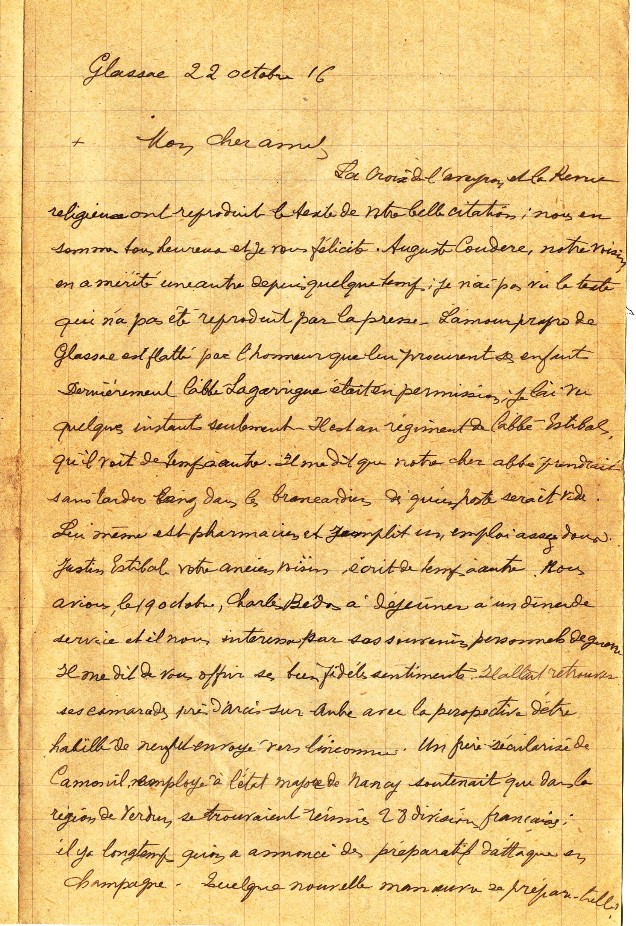 Glassac 22 octobre 16
+ Mon cher ami,
La Croix de l'aveyron et la Revue
religieuse ont reproduit le texte de votre belle citation ; nous en
somme tous heureux et je vous félicite. Auguste Coudere, notre voisin
en a mérité une autre depuis quelque temps ; je n'ai pas vu le texte
qui n'a pas été reproduit par la presse - L'amour propre de
Glassac est flatté par l'honneur que lui procurent ses enfant
Dernièrement l'abbé Lagarrigue était en permission ; je l'ai vu
quelques instant seulement - Il est au régiment de l'abbé Estibal,
qu'il voit de temps à autre. Il me dit que notre cher abbé prendrait
sans tarder rang dans les brancardiers dès qu'un poste serait vide.
Lui même est pharmacien et remplit un emploi assez doux.
Justin Estibal votre ancien voisin écrit de temps à autre. Nous
avions, le 19 octobre, Charles Bedos à déjeuner à un diner de
service et il nous interessa par ses souvenirs personnels de guerre
Il me dit de vous offrir ses bien fidèle sentiments. Il allait retrouver
ses camarades près d'arcis sur Aube avec la perspective d'être
habillé de neuf et envoyé vers l'inconnu. Un frère sécularisé de
employé à l'état major de Nancy soutenait que dans la
région de Verdun se trouvaient réunies 28 divisions françaises ;
il y a longtemps qu'on a annoncé des préparatifs d'attaque en
Champagne - Quelque nouvelle manœuvre se prépare-t-elle ?